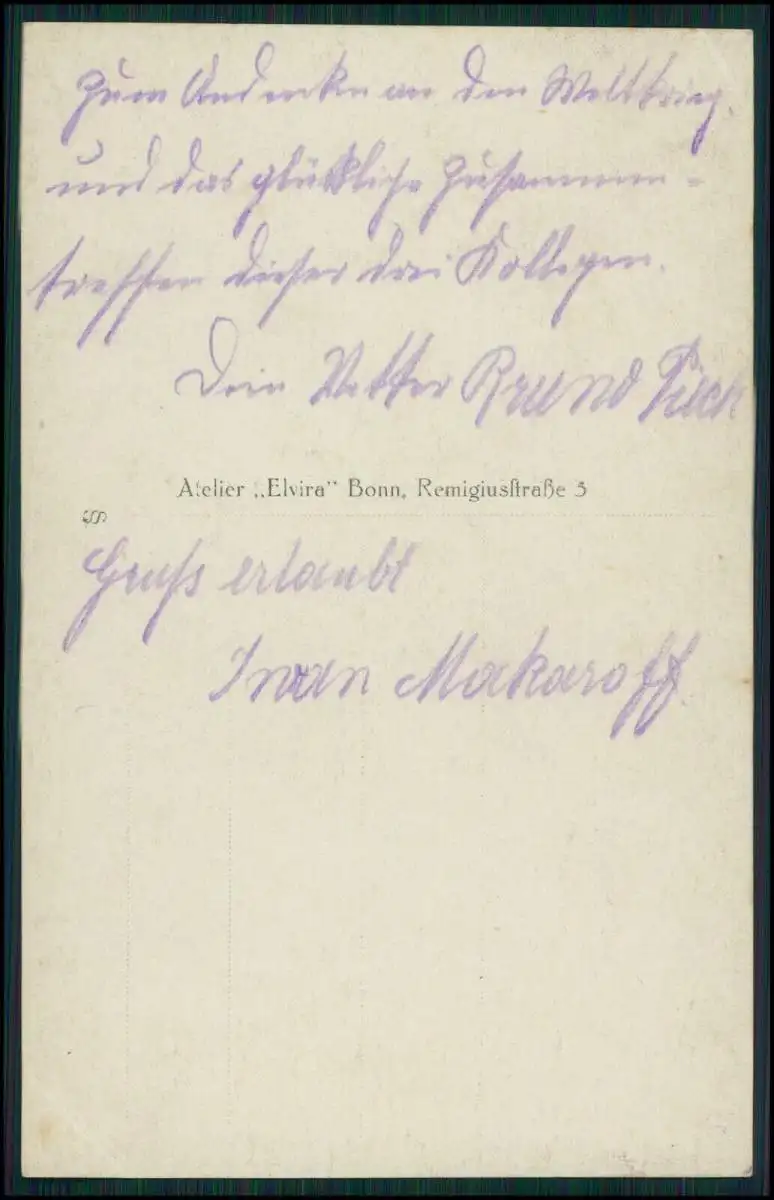 Zum Andenken an den Weltkrieg.
und das glückliche Zusammen-
treffen dieser drei Kollegen.
Dein Vetter Bruno
Atelier „Elvira" Bonn, Remigiusstraße 3
Gruss erlaubt
Iwan Makaroff